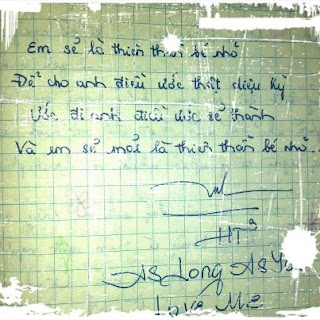 Em sẽ là thiên thần bé nhỏ
Để cho anh điều ước thật diệu kỳ
Ước đi anh điều ước sẽ thành
Và em sẽ mãi là thiên thần bé nhỏ...
HT
As Long As You
Love Me